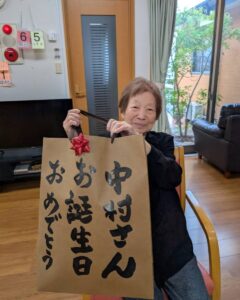 中村さん
お誕生日
おめでとう